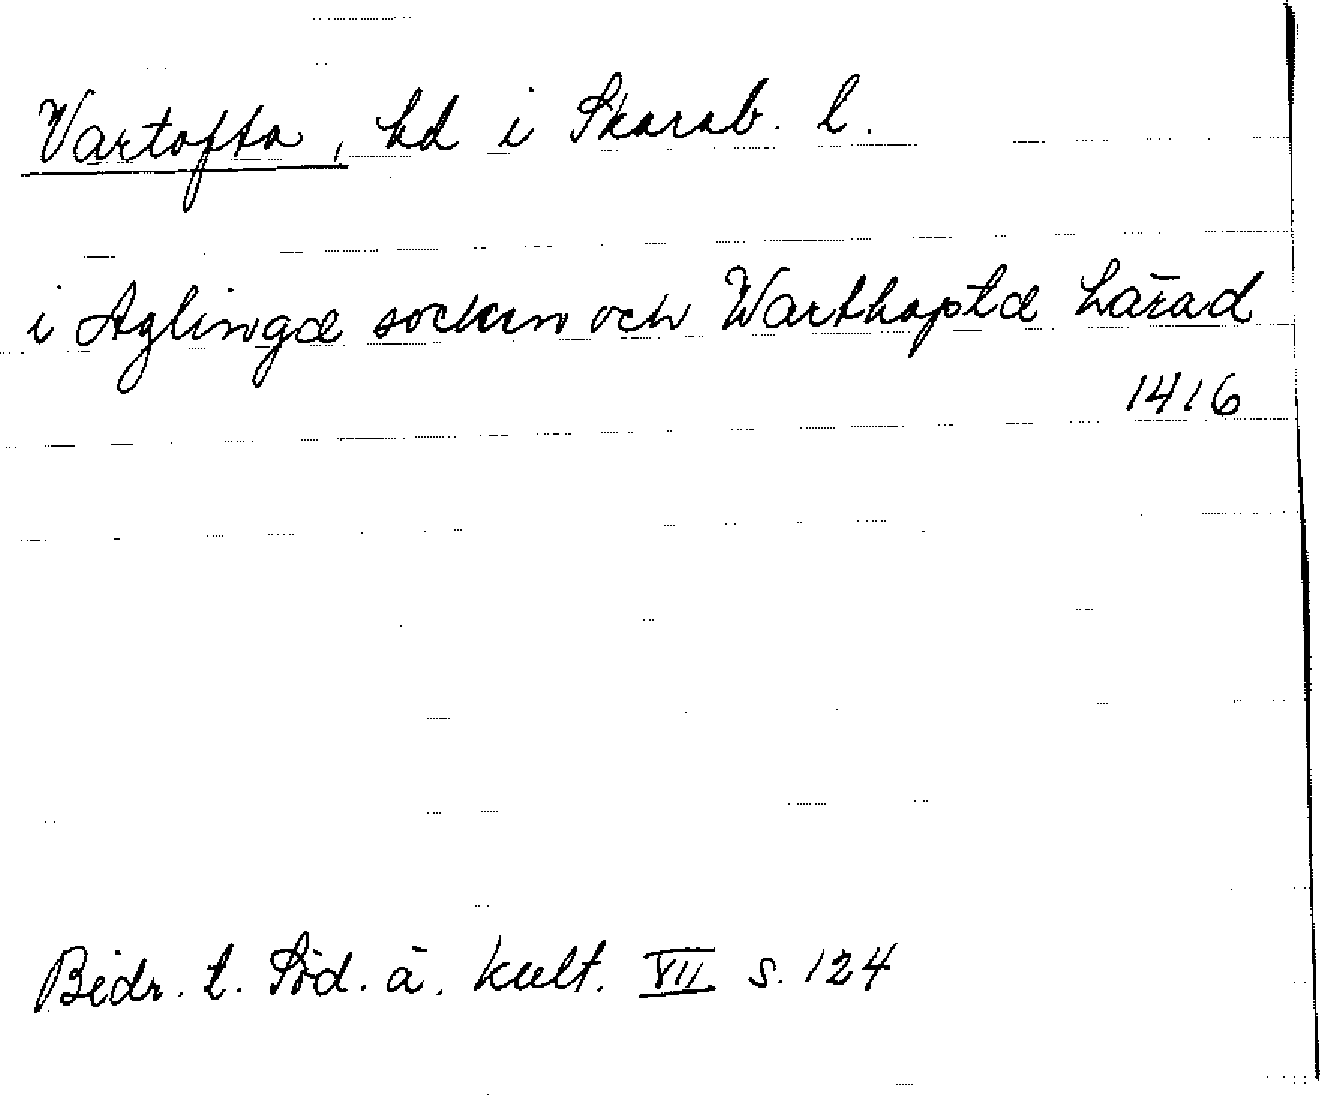 Vartofta, hd i Skarab. l.
i Aglingæ sockin och Warthoptæ härad
1416
Bidr. t. Söd. ä. kult. VII s. 124